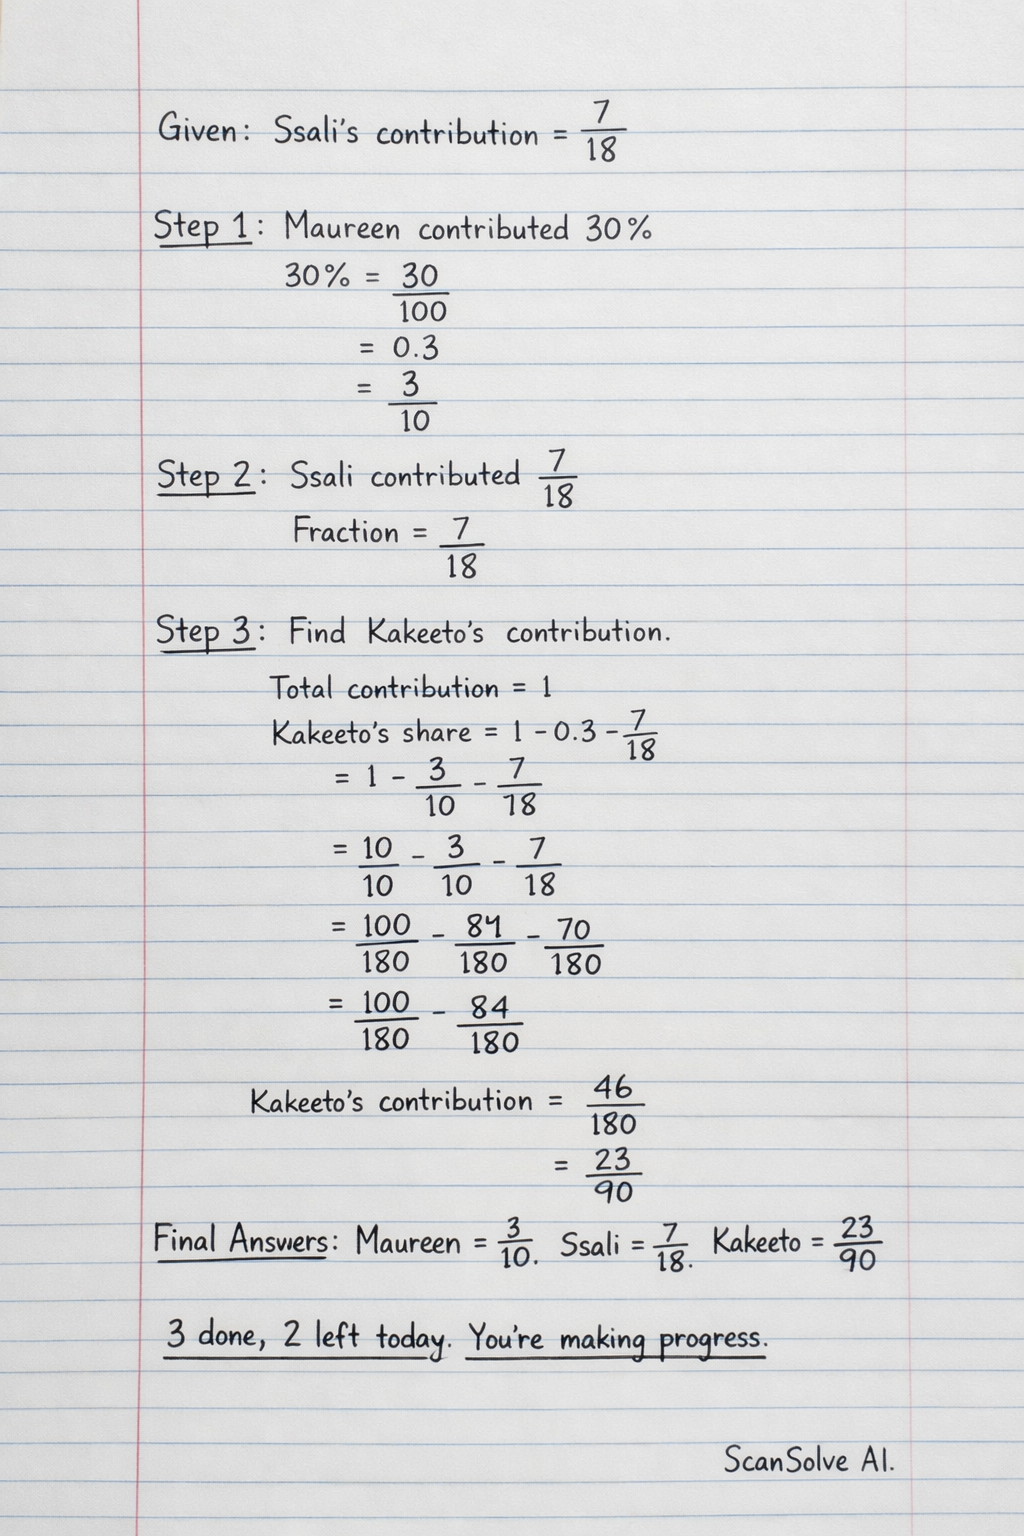 Given: Ssali's contribution = 7/18
Step 1: Maureen contributed 30%
30% = 30/100
= 0.3
= 3/10
Step 2: Ssali contributed 7/18
Fraction = 7/18
Step 3: Find Kakeeto's contribution.
Total contribution = 1
Kakeeto's share = 1 - 0.3 - 7/18
= 1 - 3/10 - 7/18
= 10/10 - 3/10 - 7/18
= 100/180 - 84/180 - 70/180
= 100/180 - 84/180
Kakeeto's contribution = 46/180
= 23/90
Final Answers: Maureen = 3/10. Ssali = 7/18. Kakeeto = 23/90
3 done, 2 left today. You're making progress.
ScanSolve AI.